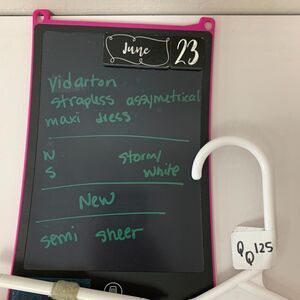 June 23
Vidarton
strapless assymetrical
maxi dress
N stormy
S white
New
semi sheer
QQ 125